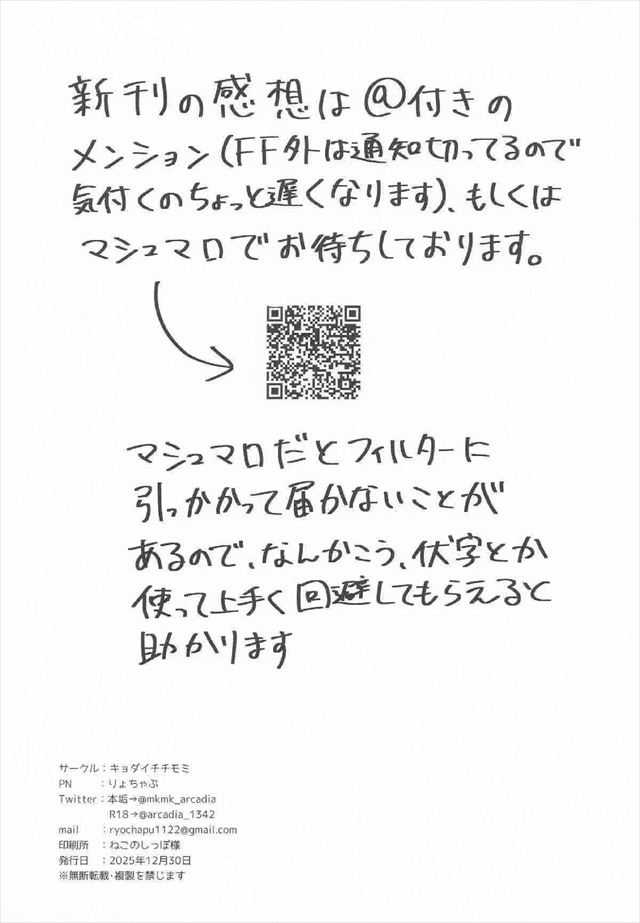 新刊の感想は@付きの
メンション(FF外は通知切ってるので
気付くのちょっと遅くなります)、もしくは
マシュマロでお待ちしております。
マシュマロだとフィルターに
引っかかって届かないことが
あるので、なんかこう、伏字とか
使って上手く回避してもらえると
助かります
サークル：キョダイチチモミ
PN　　：りょちゃぷ
Twitter：本垢→@mkmk_arcadia
R18→@arcadia_1342
mail　　：ryochapu1122@gmail.com
印刷所　：ねこのしっぽ様
発行日　：2025年12月30日
※無断転載･複製を禁じます